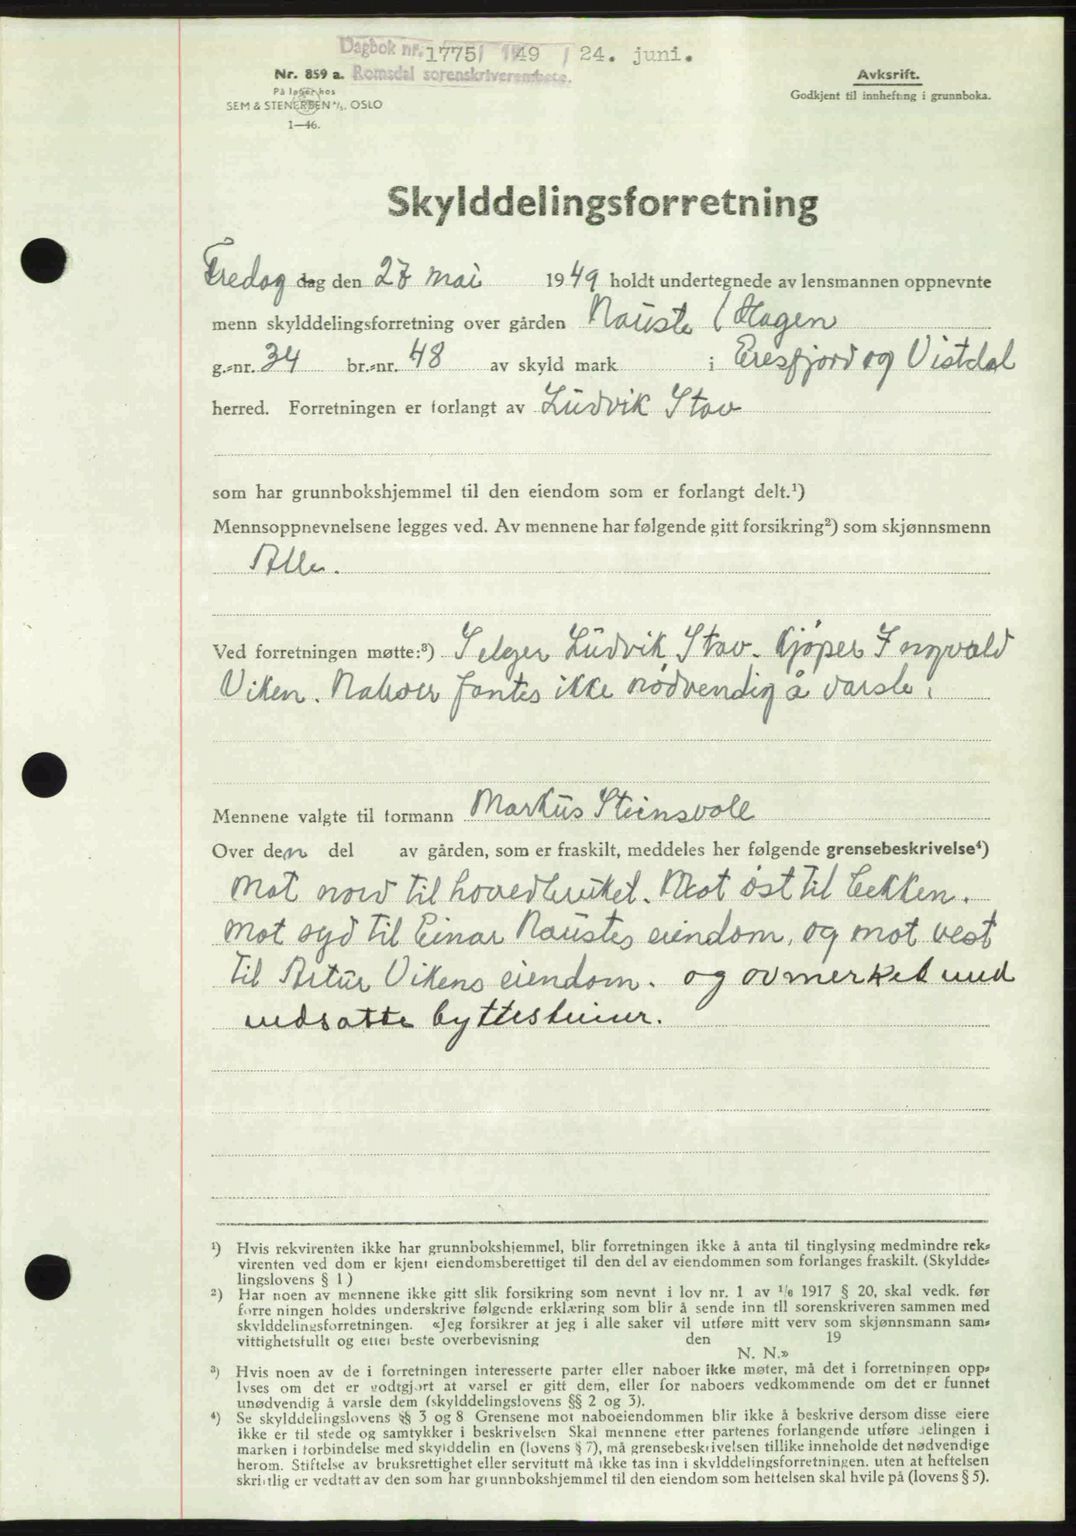 Dagbok nr. 1775/1949 / 24. juni.
Romsdal sorenskriverembete.
Nr. 859 a.
På lager hos
SEM & STENERSEN A/S. OSLO
1—46.
Avkskrift.
Godkjent til innhefting i grunnboka.
Skylddelingsforretning
Fredag dag den 27 mai 1949 holdt undertegnede av lensmannen oppnevnte
menn skylddelingsforretning over gården Nauste / Hagen
g.-nr. 34 br.-nr. 48 av skyld mark i Eresfjord og Vistdal
herred. Forretningen er forlangt av Ludvik Stav
som har grunnbokshjemmel til den eiendom som er forlangt delt.¹)
Mennsoppnevnelsene legges ved. Av mennene har følgende gitt forsikring²) som skjønnsmenn
Alle.
Ved forretningen møtte:³) Selger Ludvik Stav. Kjøper Ingvald
Viken. Naboer fantes ikke nødvendig å varsle.
Mennene valgte til formann Markus Steinsvole
Over den del av gården, som er fraskilt, meddeles her følgende grensebeskrivelse⁴)
Mot nord til hovedbruket. Mot øst til bekken.
Mot syd til Einar Naustes eiendom, og mot vest
til Artur Vikens eiendom. og avmerket med
nedsatte byttesteiner.
¹) Hvis rekvirenten ikke har grunnbokshjemmel, blir forretningen ikke å anta til tinglysing medmindre rek-
virenten ved dom er kjent eiendomsberettiget til den del av eiendommen som forlanges fraskilt. (Skyldde-
lingslovens § 1)
²) Har noen av mennene ikke gitt slik forsikring som nevnt i lov nr. 1 av 1/6 1917 § 20, skal vedk. før
forretningen holdes underskrive følgende erklæring som blir å sende inn til sorenskriveren sammen med
skylddelingsforretningen. «Jeg forsikrer at jeg i alle saker vil utføre mitt verv som skjønnsmann sam-
vittighetsfullt og etter beste overbevisning den 19
N. N.»
³) Hvis noen av de i forretningen interesserte parter eller naboer ikke møter, må det i forretningen opp-
lyses om det er godtgjort at varsel er gitt dem, eller for naboers vedkommende om det er funnet
unødvendig å varsle dem (skylddelingslovens §§ 2 og 3).
⁴) Se skylddelingslovens §§ 3 og 8 Grensene mot naboeiendommen blir ikke å beskrive dersom disse eiere
ikke er til stede og samtykker i beskrivelsen Skal mennene etter partenes forlangende utføre delingen i
marken i forbindelse med skylddelingen (lovens § 7), må grensebeskrivelsen tillike inneholde det nødvendige
herom. Stiftelse av bruksrettighet eller servitutt må ikke tas inn i skylddelingsforretningen. uten at heftelsen
skriftlig er vedtatt av den som har grunnbokshjemmel til den eiendom som heftelsen skal hvile på (lovens § 5).